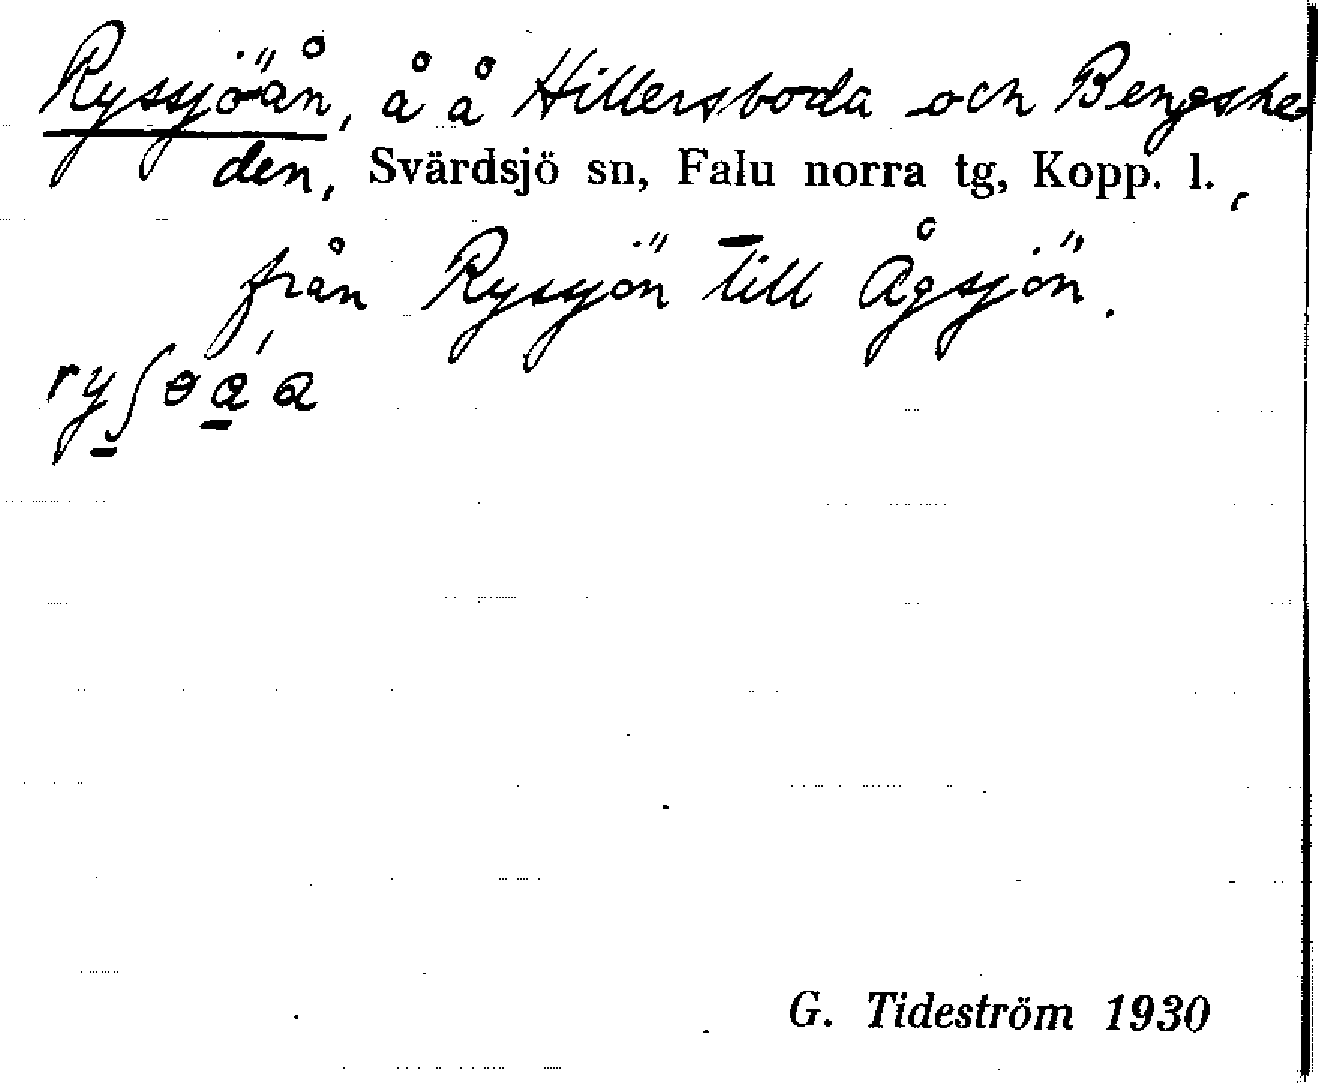 Ryssjöån, å å Hillersboda och Bengshe
den, Svärdsjö sn, Falu norra tg, Kopp. l.,
från Ryssjön till Ågsjön.
G. Tideström 1930